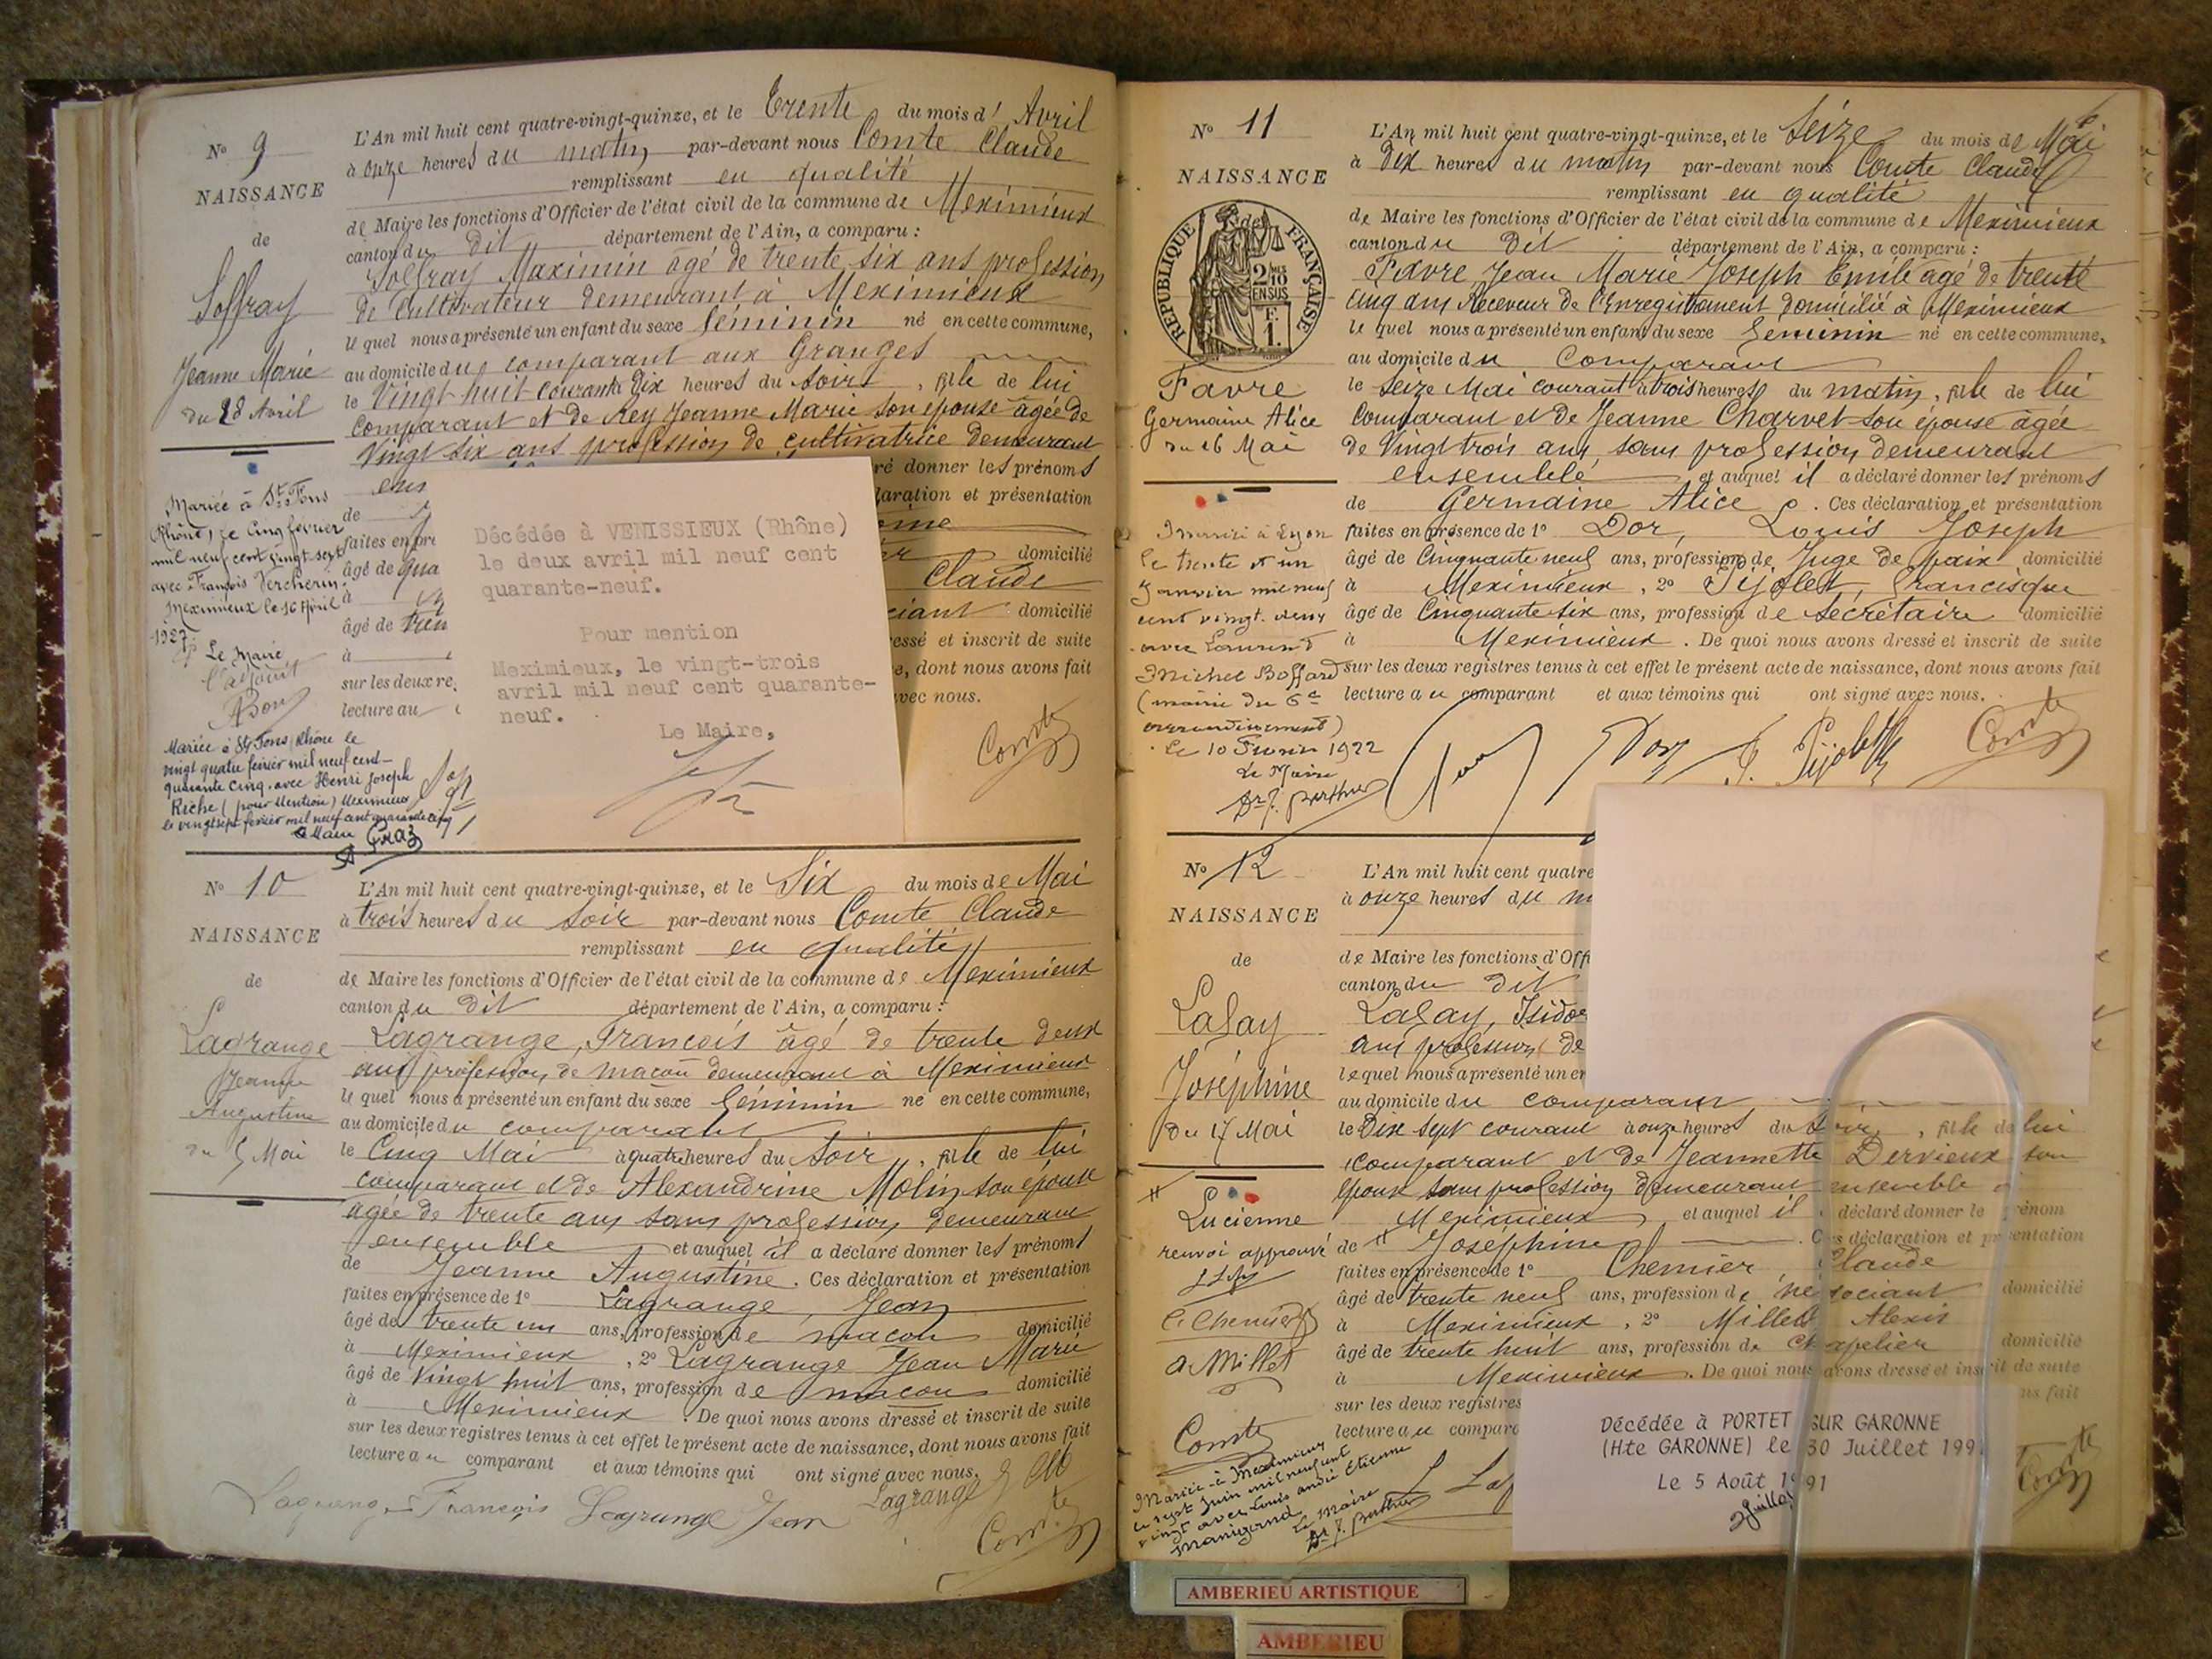 N° 9
NAISSANCE
de
Soffray
Jeanne Marie
du 28 Avril
L'An mil huit cent quatre-vingt-quinze, et le Trente du mois d' Avril
à onze heures du matin par-devant nous Comte Claude
remplissant en qualité
de Maire les fonctions d'Officier de l'état civil de la commune de Meximieux
canton du dit département de l'Ain, a comparu :
Soffray Maximin âgé de trente six ans profession
de Cultivateur demeurant à Meximieux
le quel nous a présenté un enfant du sexe féminin né en cette commune,
au domicile du comparant aux Granges
le Vingt huit courant à dix heures du soir, fille de lui
comparant et de Rey Jeanne Marie son épouse âgée de
Vingt six ans profession de cultivatrice demeurant
ens
ré donner les prénoms
de
laration et présentation
faites en pre
âgé de qua
domicilié
à
Claude
âgé de tren
ciant domicilié
à
essé et inscrit de suite
sur les deux re
e, dont nous avons fait
lecture au
vec nous.
Comte
Mariée à St Fons
(Rhône) le cinq février
mil neuf cent vingt-sept
avec François Vercherin.
Meximieux le 16 Avril
1927.
Le Maire
l'adjoint
Mariée à St Fons (Rhône le
vingt quatre février mil neuf cent
quarante cinq, avec Henri Joseph
Riche (pour Mention) Meximieux
le vingt sept février mil neuf cent quarante cinq
Le Maire
Décédée à VENISSIEUX (Rhône)
le deux avril mil neuf cent
quarante-neuf.
Pour mention
Meximieux, le vingt-trois
avril mil neuf cent quarante-
neuf.
Le Maire,
N° 10
NAISSANCE
de
Lagrange
Jeanne
Augustine
du 5 Mai
L'An mil huit cent quatre-vingt-quinze, et le Six du mois de Mai
à trois heures du soir par-devant nous Comte Claude
remplissant en qualité
de Maire les fonctions d'Officier de l'état civil de la commune de Meximieux
canton du dit département de l'Ain, a comparu :
Lagrange, François âgé de trente deux
ans profession de maçon demeurant à Meximieux
le quel nous a présenté un enfant du sexe féminin né en cette commune,
au domicile du comparant
le Cinq Mai à quatre heures du soir, fille de lui
comparant et de Alexandrine Molin son épouse
âgée de trente ans sans profession demeurant
ensemble et auquel il a déclaré donner les prénoms
de Jeanne Augustine. Ces déclaration et présentation
faites en présence de 1° Lagrange, Jean
âgé de trente un ans, profession de maçon domicilié
à Meximieux, 2° Lagrange Jean Marie
âgé de Vingt huit ans, profession de maçon domicilié
à Meximieux. De quoi nous avons dressé et inscrit de suite
sur les deux registres tenus à cet effet le présent acte de naissance, dont nous avons fait
lecture au comparant et aux témoins qui ont signé avec nous.
Lagrange François Lagrange Jean Lagrange
Comte
N° 11
NAISSANCE
de
RÉPUBLIQUE FRANÇAISE
2/10
EN SUS
F.
1.
Favre
Germaine Alice
du 16 Mai
L'An mil huit cent quatre-vingt-quinze, et le Seize du mois de Mai
à Dix heures du matin par-devant nous Comte Claude
remplissant en qualité
de Maire les fonctions d'Officier de l'état civil de la commune de Meximieux
canton du dit département de l'Ain, a comparu :
Favre Jean Marie Joseph Emile âgé de trente
cinq ans Receveur de l'Enregistrement domicilié à Meximieux
le quel nous a présenté un enfant du sexe féminin né en cette commune,
au domicile du comparant
le seize Mai courant à trois heures du matin, fille de lui
comparant et de Jeanne Charvet son épouse âgée
de Vingt trois ans, sans profession demeurant
ensemble et auquel il a déclaré donner les prénoms
de Germaine Alice. Ces déclaration et présentation
faites en présence de 1° Dor, Louis Joseph
âgé de Cinquante neuf ans, profession de Juge de paix domicilié
à Meximieux, 2° Pijolet, francisque
âgé de Cinquante six ans, profession de secrétaire domicilié
à Meximieux. De quoi nous avons dressé et inscrit de suite
sur les deux registres tenus à cet effet le présent acte de naissance, dont nous avons fait
lecture au comparant et aux témoins qui ont signé avec nous.
Dor Pijolet Comte
Mariée à Lyon
le trente et un
Janvier mil neuf
cent vingt-deux
avec Laurent
Michel Boffard
(mairie du 6e
arrondissement)
Le 10 Février 1922
Le Maire
Dr J. Berthier
N° 12
NAISSANCE
de
Lafay
Joséphine
Du 17 Mai
L'An mil huit cent quatre
à onze heures du m
de Maire les fonctions d'Offi
canton du dit
Lafay, Isidore
ans profession de
lequel nous a présenté un en
au domicile du comparant
le Dix sept courant à onze heures du soir, fille de lui
comparant et de Jeannette Dervieux son
épouse sans profession demeurant ensemble
Meximieux et auquel il a déclaré donner le prénom
de Joséphine. Ces déclaration et présentation
faites en présence de 1° Chemier, Claude
âgé de trente neuf ans, profession de négociant domicilié
à Meximieux, 2° Millet Alexis
âgé de trente huit ans, profession de chapelier domicilié
à Meximieux. De quoi nous avons dressé et inscrit de suite
sur les deux registres ns fait
lecture au compara
Comte
Lucienne
renvoi approuvé
C. Chemier
A Millet
Comte
Mariée à Meximieux
le sept juin mil neuf cent
vingt avec Louis André Etienne
Manigand.
Le Maire
Dr J. Berthier
Décédée à PORTET SUR GARONNE
(Hte GARONNE) le 30 Juillet 199
Le 5 Août 1991
AMBERIEU ARTISTIQUE
AMBERIEU